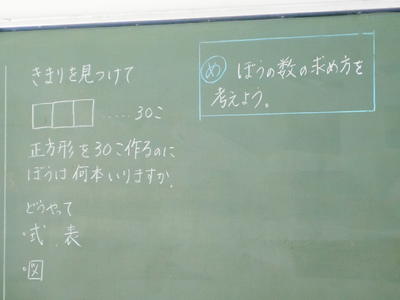 きまりを見つけて
……30こ
正方形を30こ作るのに
ぼうは何本いりますか。
どうやって
・式、表
・図
め ぼうの数の求め方を
考えよう。